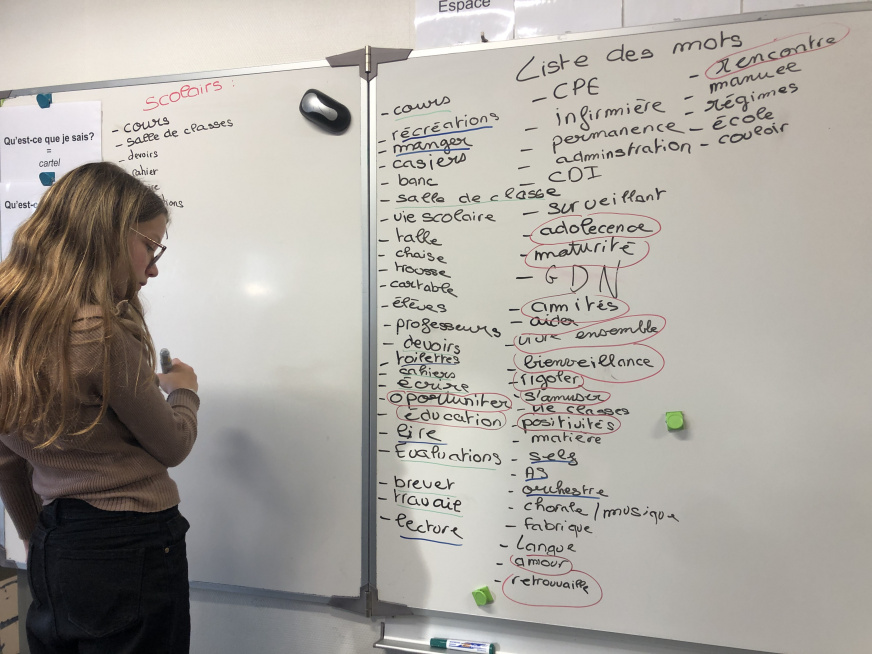 Espace
Qu'est-ce que je sais?
=
cartel
Qu'est-c
scolairs :
- cours
- salle de classes
- devoirs
cahier
ire
ions
Liste des mots
- cours
- récréations
- manger
- casiers
- banc
- salle de classe
- vie scolaire
- talle
- chaise
- trousse
- cartable
- élèves
- professeurs
- devoirs
- toilettes
- cahiers
- écrire
- oportuniter
- éducation
- lire
- Evaluations
- brevet
- travail
- lecture
- CPE
- infirmière
- permanence
- adminstration
- CDI
- surveillant
- adolecence
- maturité
- GDN
- amités
- aider
- vivre ensemble
- bienveillance
- rigoler
- s'amuser
- vie classes
- positivités
- matière
- self
- AS
- orchestre
- chorale / musique
- fabrique
- Langue
- amour
- retrouvaille
- rencontre
- manuel
- régimes
- école
- couloir